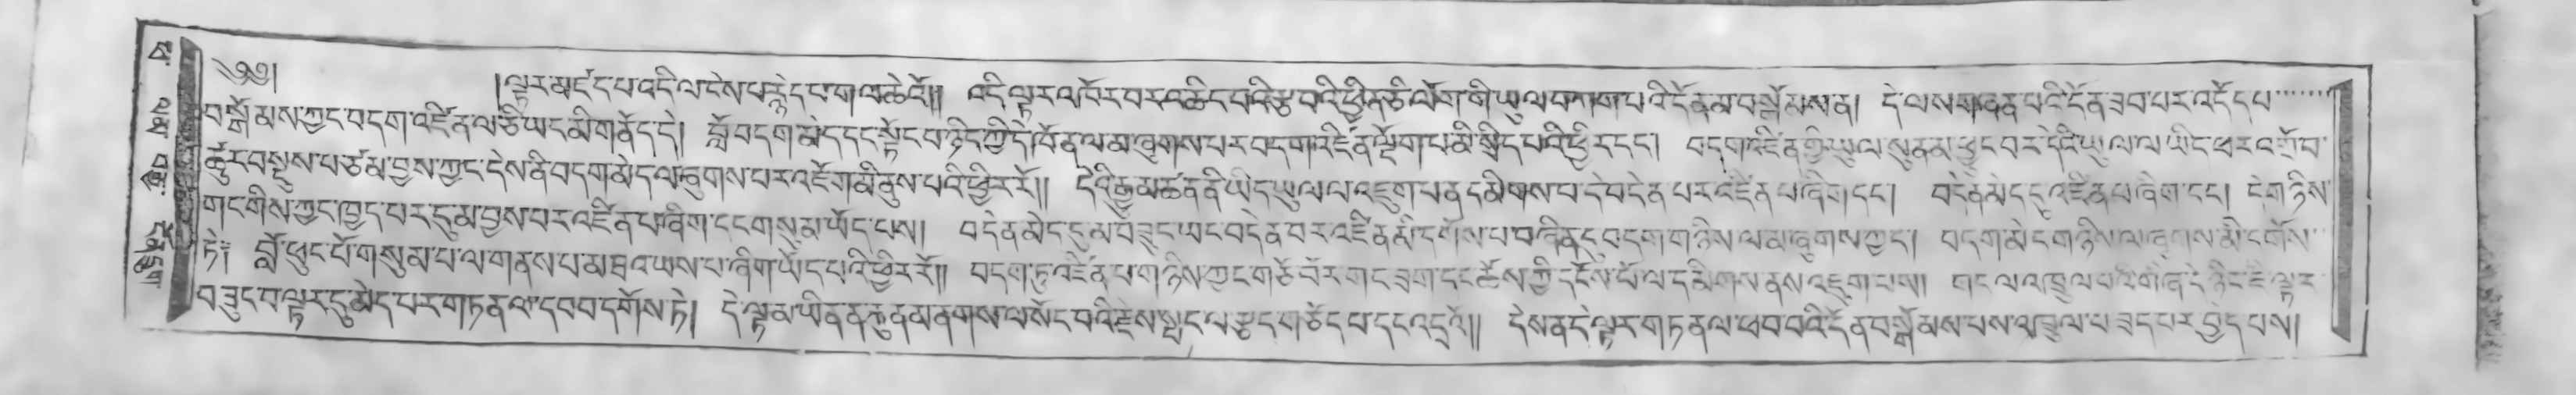 ༄༅། །ལྟར་མཛད་པ་འདི་ལ་ངེས་པ་རྙེད་པ་གལ་ཆེའོ།། འདི་ལྟར་འཁོར་བར་འཆིང་བའི་རྩ་བའི་ཕྱིན་ཅི་ལོག་གི་ཡུལ་བཀག་པའི་དོན་མ་བསྒོམས་ན། དེ་ལས་གཞན་པའི་དོན་ཟབ་པར་འདོད་པ
བསྒོམས་ཀྱང་བདག་འཛིན་ལ་ཅི་ཡང་མི་གནོད་དེ། བློ་བདག་མེད་དང་སྟོང་པ་ཉིད་ཀྱི་དེ་ཁོ་ན་ལ་མ་ཞུགས་པར་བདག་འཛིན་ལྡོག་པ་མི་སྲིད་པའི་ཕྱིར་དང་། བདག་འཛིན་གྱི་ཡུལ་སུན་མ་ཕྱུང་བར་དེའི་ཡུལ་ལ་ཡིད་ཕར་འགྲོ་བ་
ཚུར་བསྡུས་པ་ཙམ་བྱས་ཀྱང་དེས་ནི་བདག་མེད་ལ་ཞུགས་པར་འཇོག་མི་ནུས་པའི་ཕྱིར་རོ།། དེའི་རྒྱུ་མཚན་ནི་ཡིད་ཡུལ་ལ་འཇུག་པ་ན་དམིགས་པ་དེ་བདེན་པར་འཛིན་པ་ཞིག་དང་། བདེན་མེད་དུ་འཛིན་པ་ཞིག་དང་། དེ་གཉིས་
གང་གིས་ཀྱང་ཁྱད་པར་དུ་མ་བྱས་པར་འཛིན་པ་ཞིག་དང་གསུམ་ཡོད་པས། བདེན་མེད་དུ་མ་བཟུང་ཡང་བདེན་པར་འཛིན་མི་དགོས་པ་བཞིན་དུ་བདག་གཉིས་ལ་མ་ཞུགས་ཀྱང་། བདག་མེད་གཉིས་ལ་ཞུགས་མི་དགོས་
ཏེ༔ བློ་ཕུང་པོ་གསུམ་པ་ལ་གནས་པ་མཐའ་ཡས་པ་ཞིག་ཡོད་པའི་ཕྱིར་རོ།། བདག་ཏུ་འཛིན་པ་གཉིས་ཀྱང་གཙོ་བོར་གང་ཟག་དང་ཆོས་ཀྱི་དངོས་པོ་ལ་དམིགས་ནས་འཇུག་པས། གང་ལ་འཁྲུལ་པའི་གཞི་དེ་ཉིད་ཇི་ལྟར་
བཟུང་བ་ལྟར་དུ་མེད་པར་གཏན་ལ་དབབ་དགོས་ཏེ། དེ་ལྟ་མ་ཡིན་ན་རྐུན་མ་ནགས་ལ་སོང་བའི་རྗེས་སྤང་ལ་རྩད་གཅོད་པ་དང་འདྲའོ།། དེས་ན་དེ་ལྟར་གཏན་ལ་ཕབ་པའི་དོན་བསྒོམས་པས་འཁྲུལ་པ་ཟད་པར་བྱེད་པས།